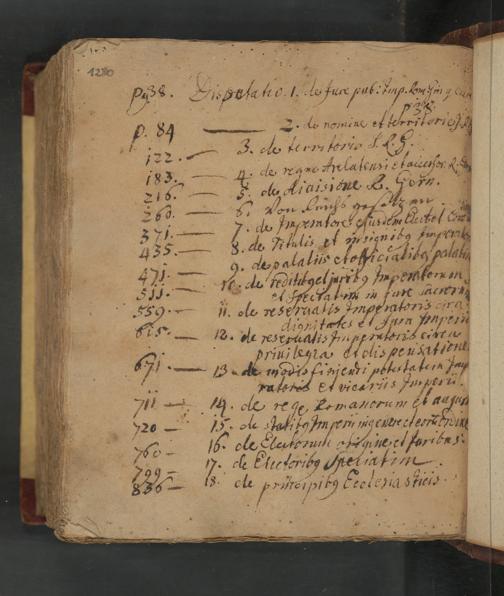 1280
pg38. Disputatio. 1. de jure pub: Imp. Rom
p. 84 — 2. de nomine et territorio
122. — 3. de territorio I. R. G.
183. — 4. de regno Arelatensi et
216. — 5. de divisione R. Germ.
260. — 6. Von
371. — 7. de Imperatore ejusdem Elect
435. — 8. de Titulis et insignibq Imperato
471. — 9. de palatiis et officialibq palati
511. — 10. de reditibq et juribq Imperatorum
et spectatim in jure sacrorum
559. — 11. de reservatis Imperatoris circa
dignitates et jura Imperii
615. — 12. de reservatis Imperatoris circa
privilegia et dispensatione
671. — 13. de modis finiendi potestatem Imp
ratoris et vicariis Imperii.
711 — 14. de rege Romanorum et august
720 — 15. de statibq Imperii in genere et
760 — 16. de Electorum origine et juribus.
799 — 17. de Electoribq speciatim
836 — 18. de principibq Ecclesiasticis.